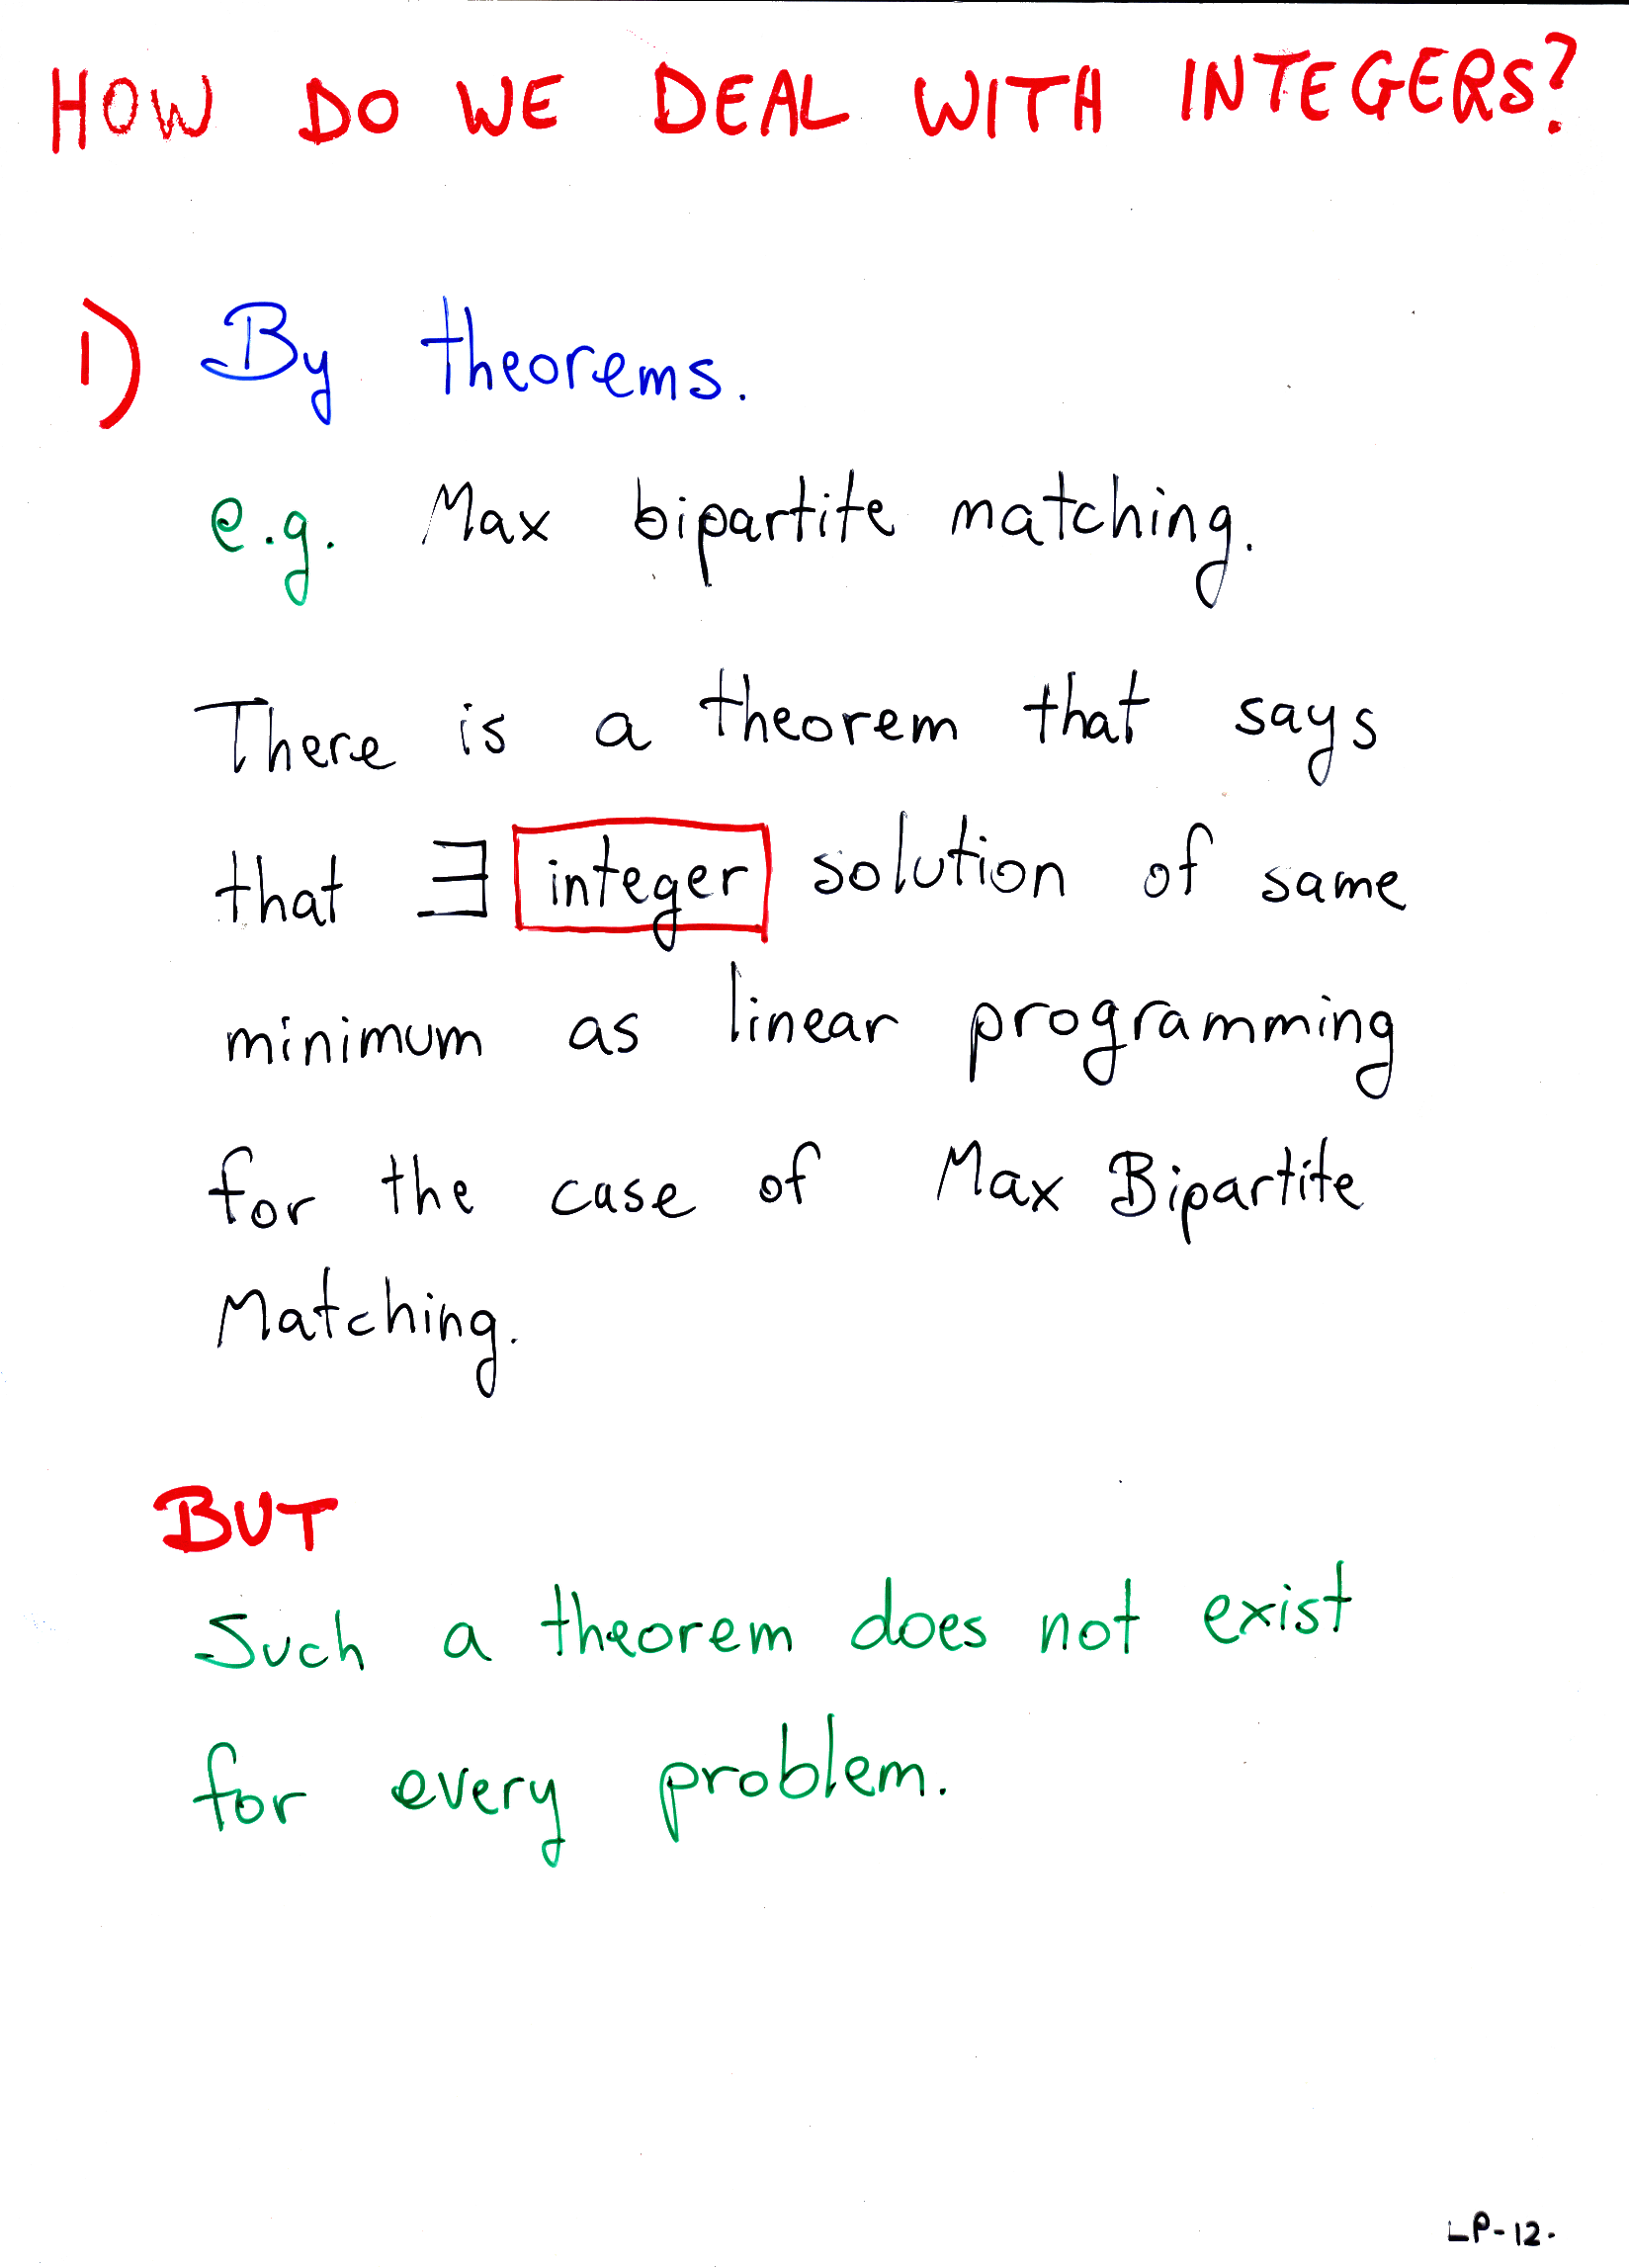 HOW DO WE DEAL WITH INTEGERS?
1) By theorems.
e.g. Max bipartite matching.
There is a theorem that says
that ∃ integer solution of same
minimum as linear programming
for the case of Max Bipartite
Matching.
BUT
Such a theorem does not exist
for every problem.
LP-12-